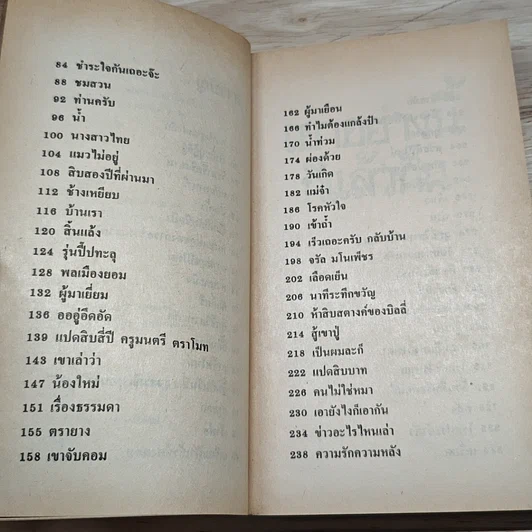 84 ชำระใจกันเถอะจ๊ะ
88 ชมสวน
92 ท่านครับ
96 น้ำ
100 นางสาวไทย
104 แมวไม่อยู่
108 สิบสองปีที่ผ่านมา
112 ช้างเหยียบ
116 บ้านเรา
120 สิ้นแล้ง
124 รุ่นปี๋ปทะลุ
128 พลเมืองยอม
132 ผู้มาเยี่ยม
136 ออยู่อึดอัด
139 แปดสิบสี่ปี ครูมนตรี ตราโมท
143 เขาเล่าว่า
147 น้องใหม่
151 เรื่องธรรมดา
155 ตรายาง
158 เขาจับคอม
162 ผู้มาเยือน
166 ทำไมต้องแกล้งป้า
170 น้ำท่วม
174 ผ่องด้วย
178 วันเกิด
182 แม่จ๋า
186 โรคหัวใจ
190 เข้าถ้ำ
194 เร็วเถอะครับ กลับบ้าน
198 จรัล มโนเพ็ชร
202 เลือดเย็น
206 นาทีระทึกขวัญ
210 ห้าสิบสตางค์ของบิลลี่
214 สู้เขาปู่
218 เป็นผมละก็
222 แปดสิบบาท
226 คนไม่ใช่หมา
230 เอายังไงก็เอากัน
234 ข่าวอะไรไหนเล่า
238 ความรักความหลัง